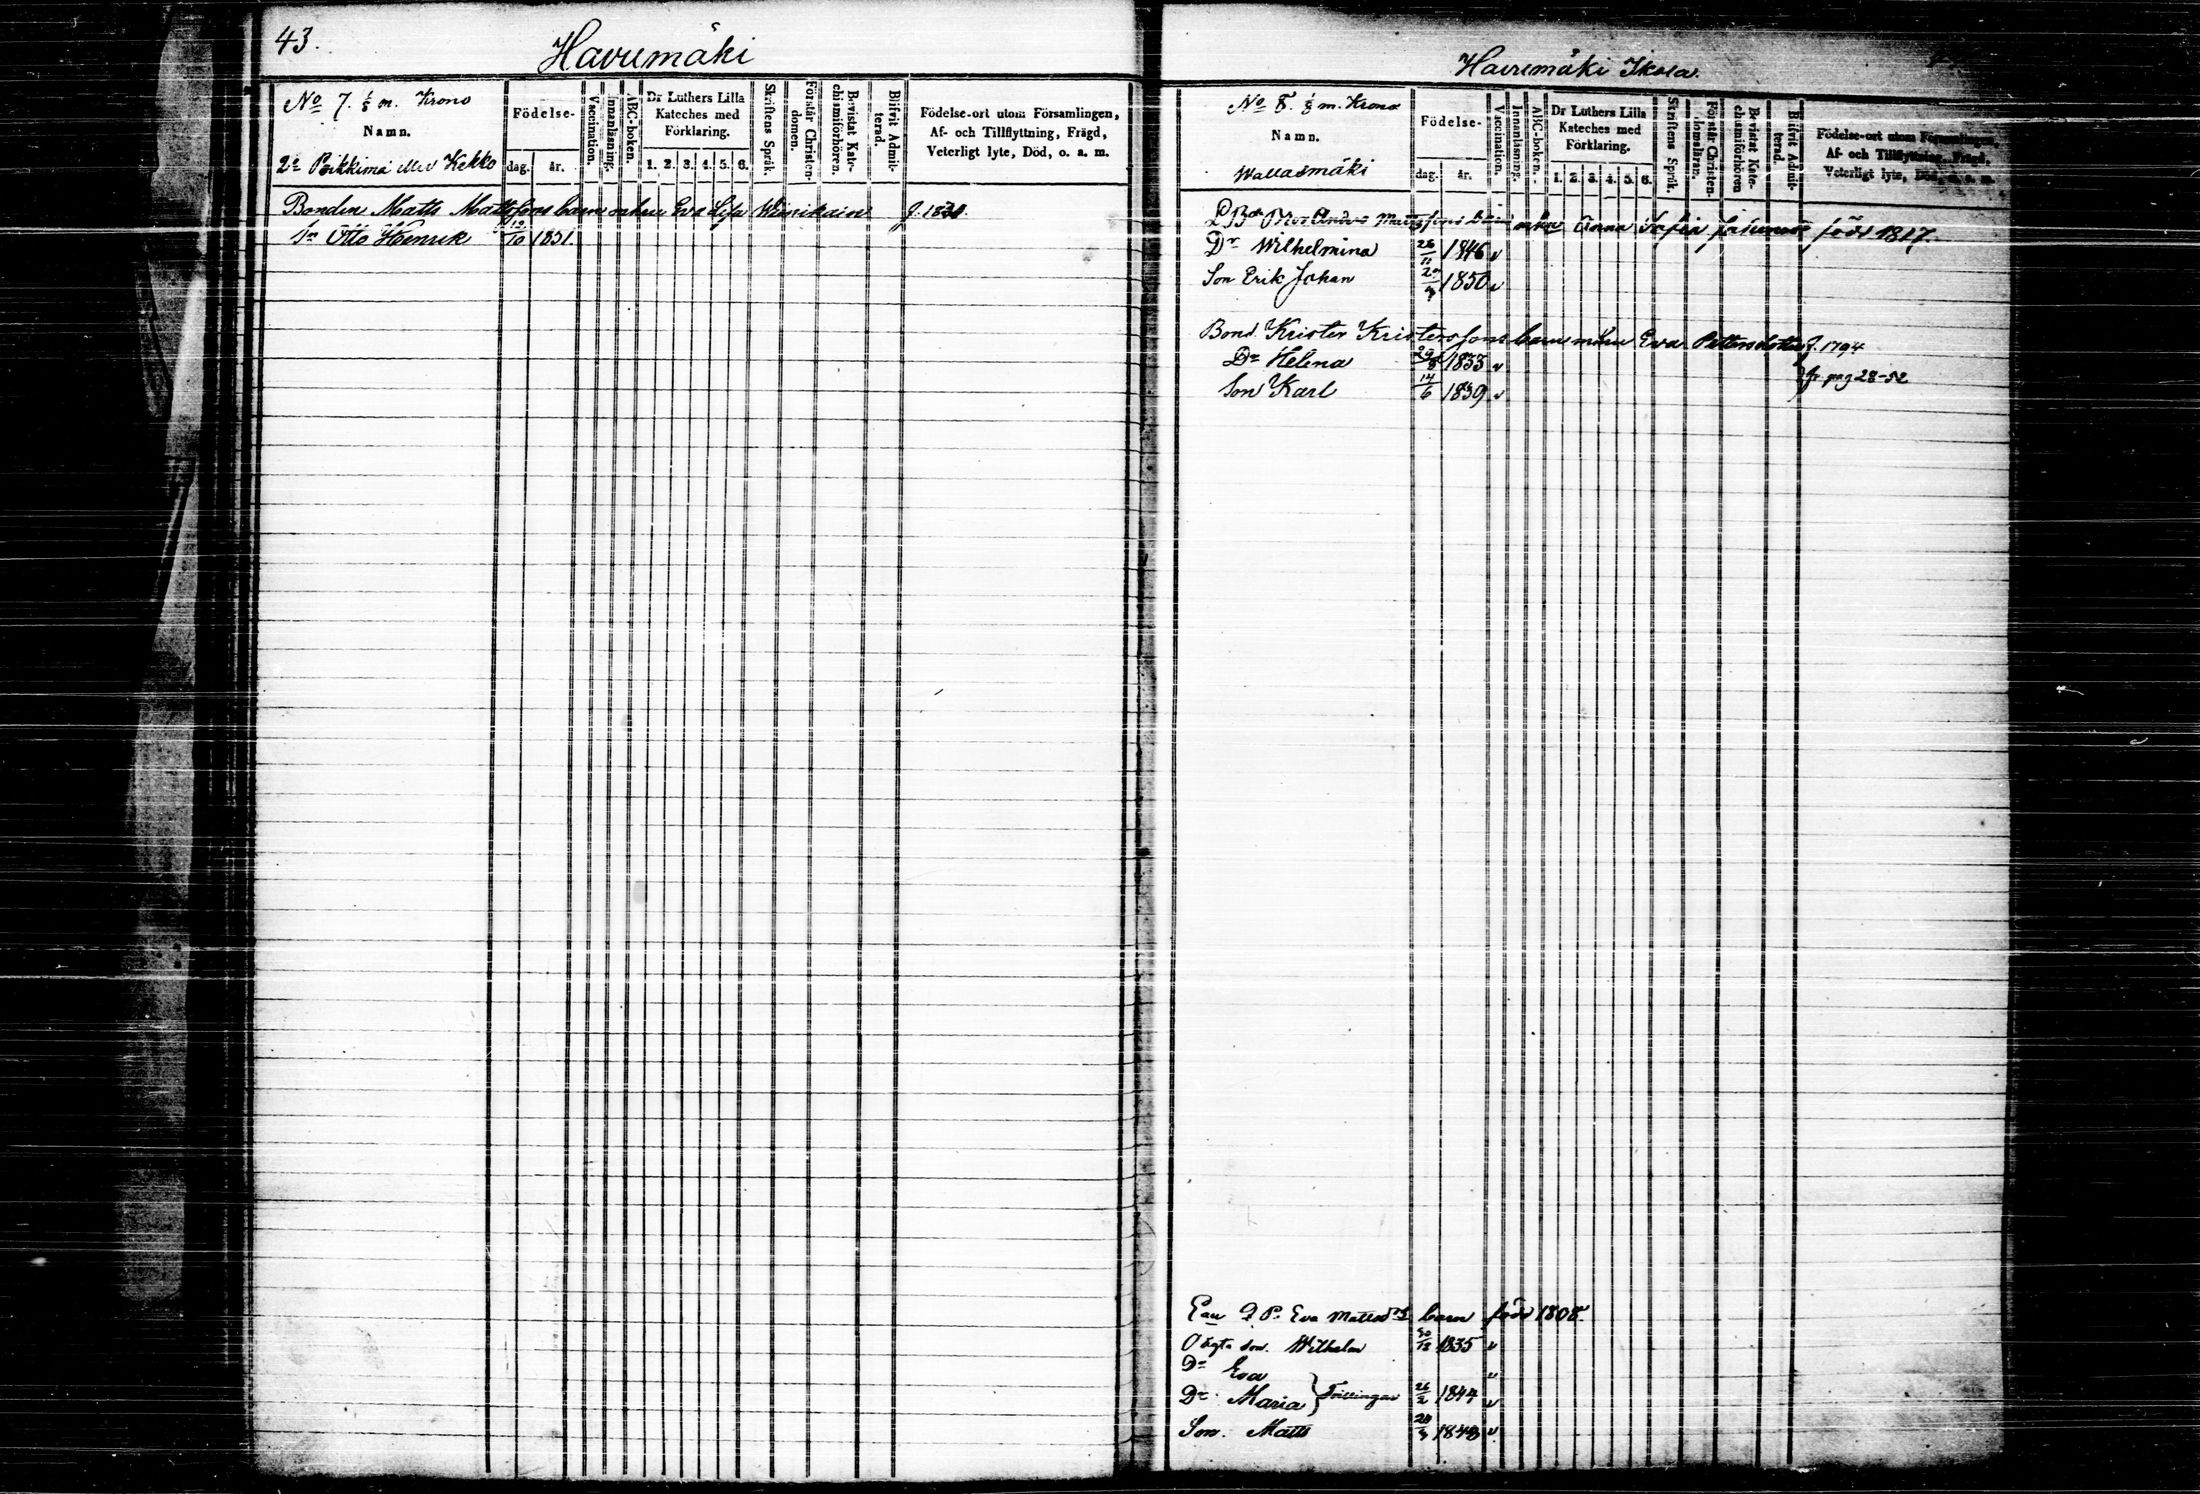 43.
Havumäki
No 7. 1/8 m. Krono
Namn.
2a Pikkima eller Kekko
Födelse-
dag. år.
Vaccination.
Innanläsning.
ABC-boken.
Dr Luthers Lilla
Kateches med
Förklaring.
1. 2. 3. 4. 5. 6.
Skriftens Språk.
Förstår Christen-
domen.
Bevistat Kate-
chismiförhören.
Blifvit Admit-
terad.
Födelse-ort utom Församlingen,
Af- och Tillflyttning, Frägd,
Veterligt lyte, Död, o. a. m.
Bonden Matts Mattssons barn Eva Lisa Winikain f. 1831.
Sn Otto Henrik 12/10 1851.
Havumäki Ikola.
No 8. 1/8 m. Krono
Namn.
Wallasmäki
Födelse-
dag. år.
Vaccination.
Innanläsning.
ABC-boken.
Dr Luthers Lilla
Kateches med
Förklaring.
1. 2. 3. 4. 5. 6.
Skriftens Språk.
Förstår Christen-
domsläran.
Bevistat Kate-
chismiförhören
Blifvit Admit-
terad.
Födelse-ort utom Församlingen,
Af- och Tillflyttning, Frägd,
Veterligt lyte, Död, o. a. m.
Mattssons barn Anna Sofia född 1817.
Dr Wilhelmina 26/11 1846 v
Son Erik Johan 1850 v
Bond. Krister Kristerssons barn Eva Pettersdotter f. 1794
Dr Helena 1833 v
fr pag 28-52
Son Karl 14/6 1839 v
Eva Mattsdr barn född 1808.
Oägta son. Wilhelm 1835 v
Dr Eva v
Dr Maria Tvillingar 26/2 1844 v
Son. Matts 1848 v